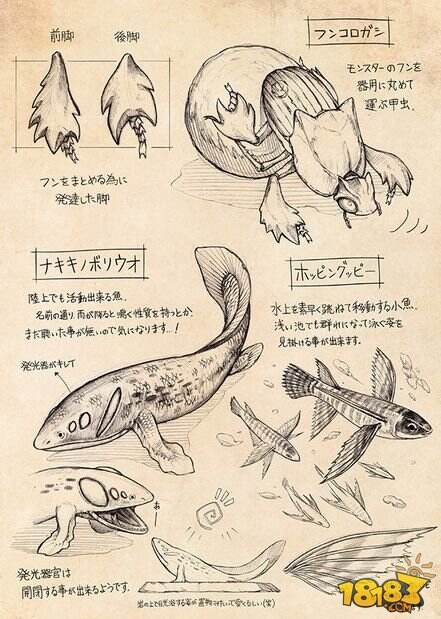 前脚
後脚
フンをまとめる為に
発達した脚
フンコロガシ
モンスターのフンを
器用に丸めて
運ぶ甲虫。
ナキキノボリウオ
陸上でも活動出来る魚。
名前の通り雨が降ると鳴く性質を持つとか。
まだ聴いた事が無いので気になります…!
発光器が
ホッピングッピー
水上を素早く跳ねて移動する小魚。
浅い池でも群れになって泳ぐ姿を
見掛ける事が出来ます。
発光器官は
開閉する事が出来るようです。
18183
.COM